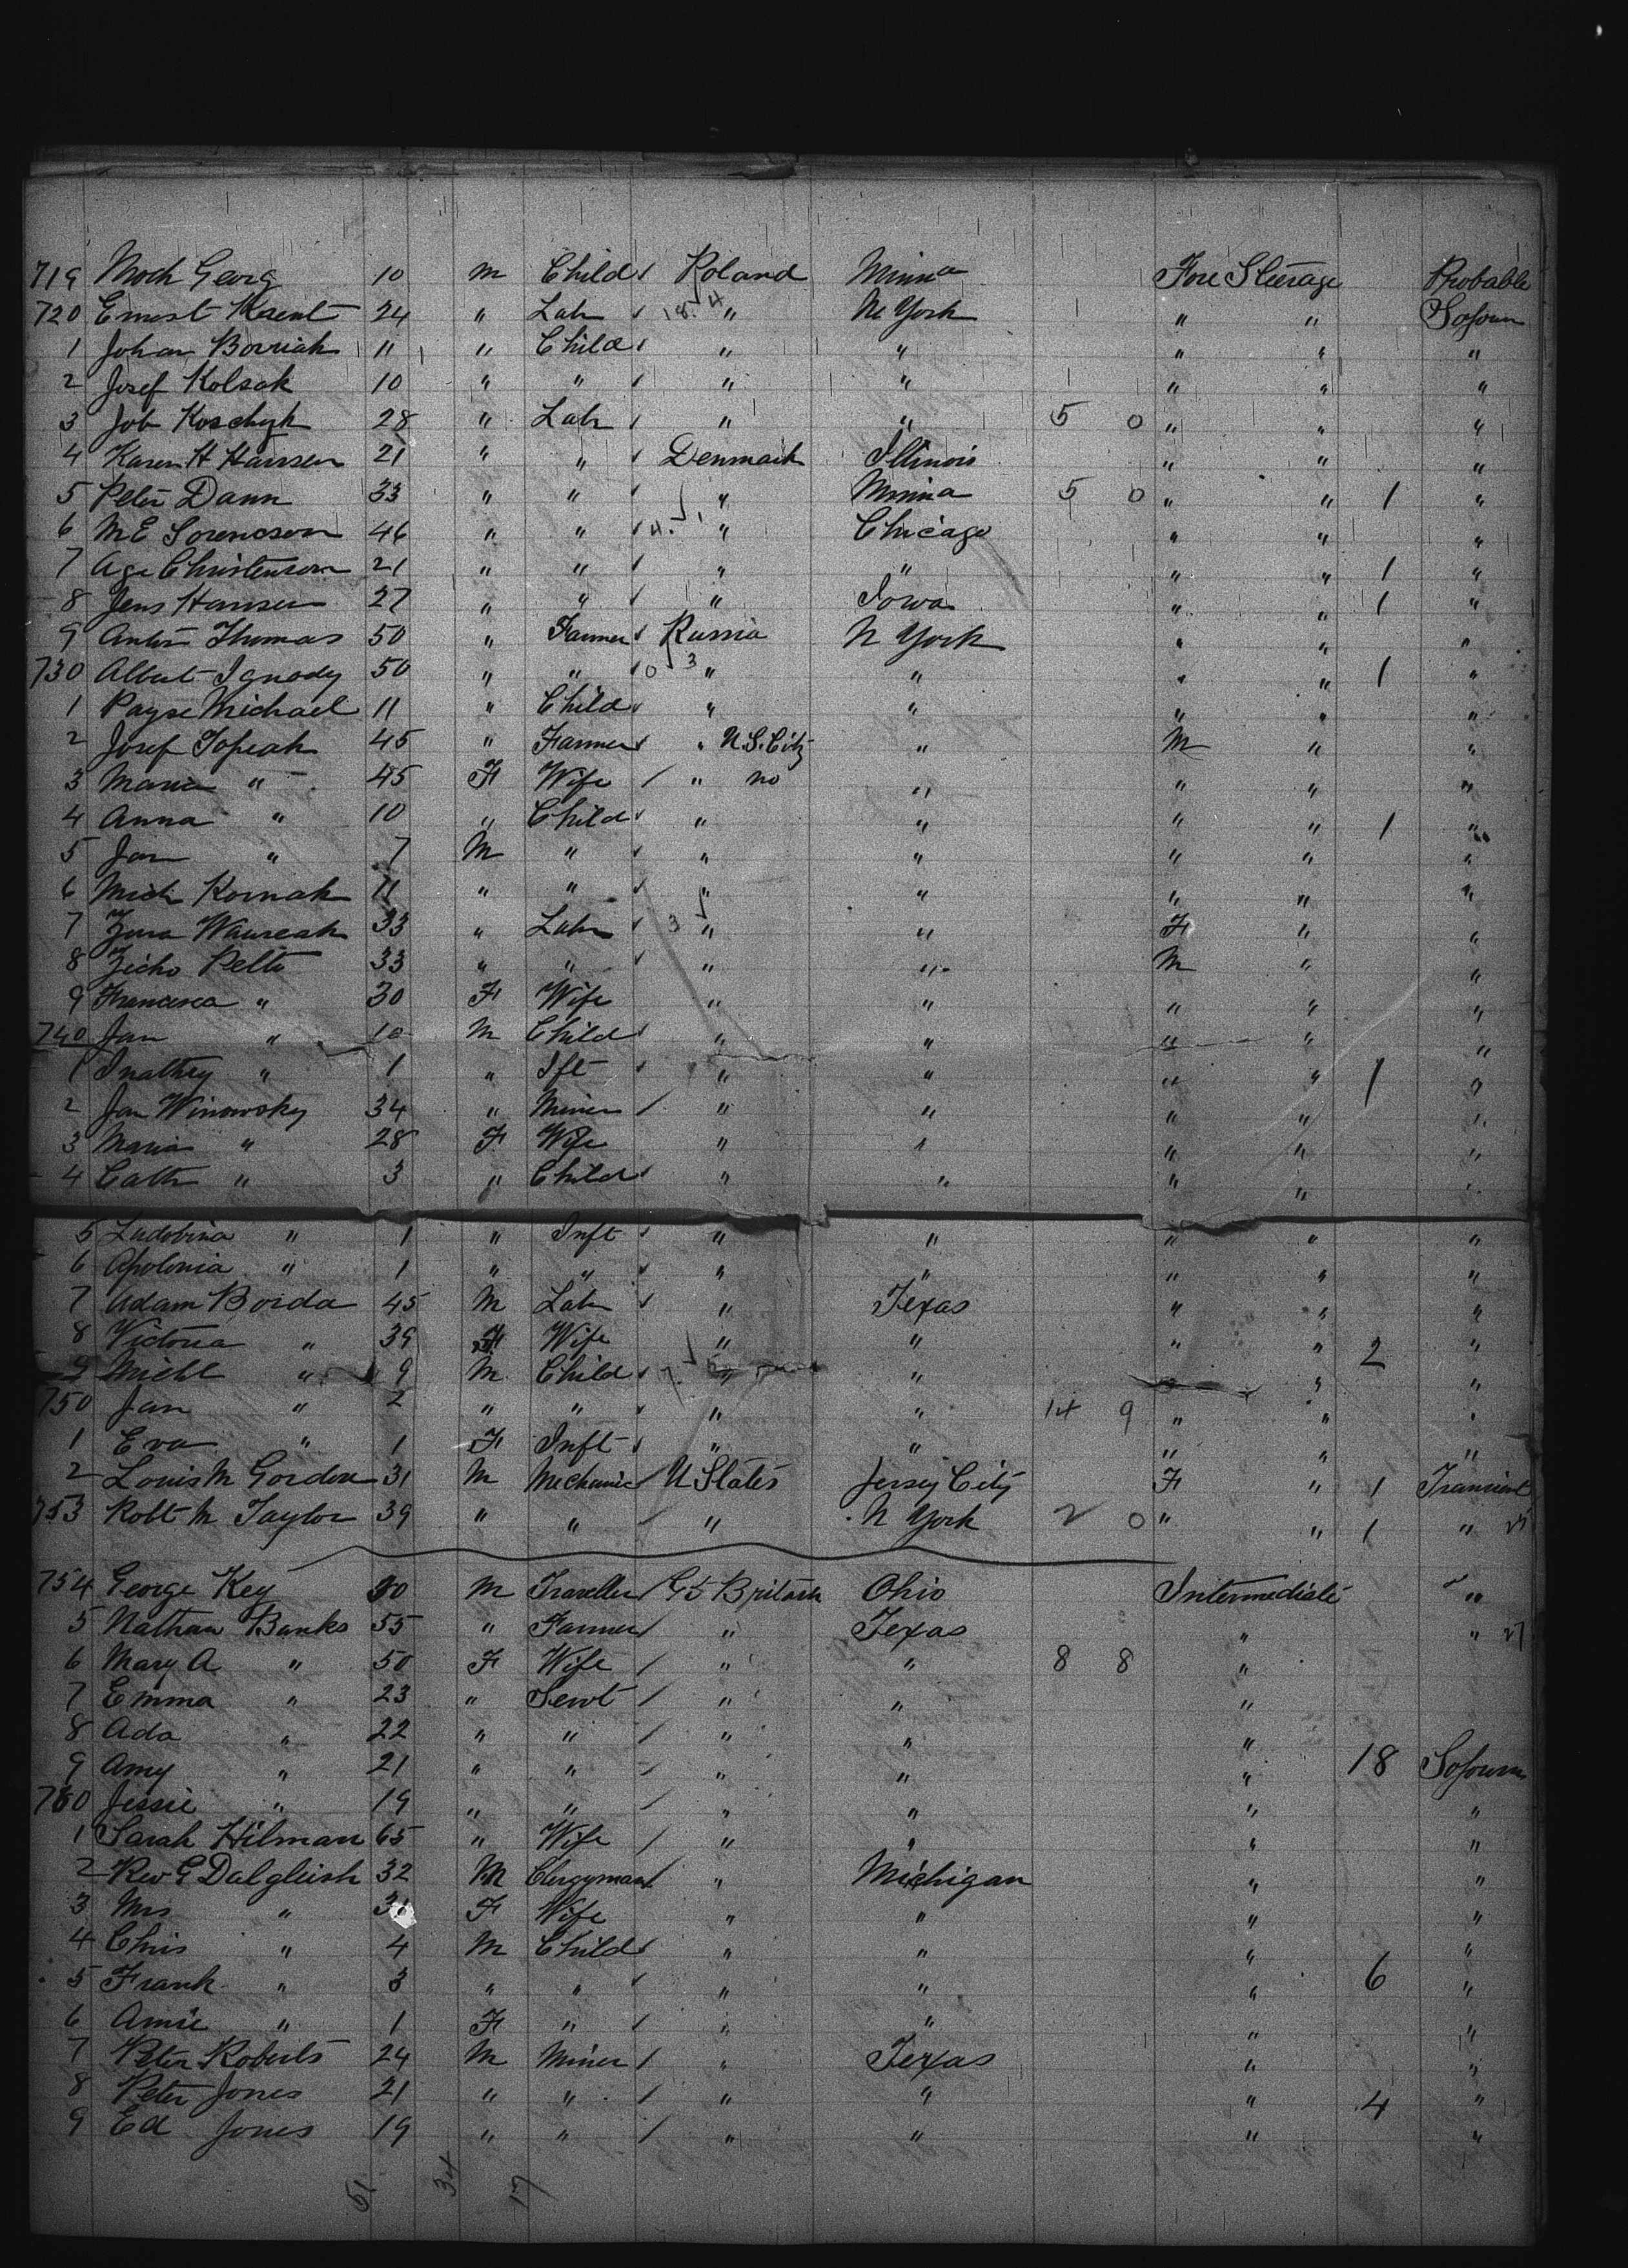 719 Moch Georg 10 m Child Poland Minna Fore Steerage Probable
720 Ernest Kaent 24 " Labr 18. 4 " N York " " Sojourn
1 Johan Borriak 11 " Child " " " " "
2 Josef Kolsak 10 " " " " " " "
3 Job Koschyk 28 " Labr " " 5 0 " " "
4 Karen H Hansen 21 " " Denmark Illinois " " "
5 Peter Dann 33 " " " Minna 5 0 " " 1 "
6 M E Sorencson 46 " " 4. 1 " Chicago " " "
7 Age Christenson 21 " " " " " " 1 "
8 Jens Hansen 27 " " " Iowa " " 1 "
9 Anton Thomas 50 " Farmer Russia N York " " "
730 Albert Ignody 50 " " 0 3 " " " " 1 "
1 Payse Michael 11 " Child " " " " "
2 Josef Topeak 45 " Farmer " U.S. Citz " M " "
3 Maria " 45 F Wife / " no " " " "
4 Anna " 10 " Child " " " " 1 "
5 Jan " 7 M " " " " " "
6 Mich Kornak 11 " " " " " " "
7 Waureak 33 " Labr 3 " " F " "
8 Zicho Pelto 33 " " " " M " "
9 Francisca " 30 F Wife " " " " "
740 Jan " 10 M Child " " " " "
1 Inathey " 1 " Ift " " " " 1 "
2 Jan Winowsky 34 " Miner / " " " " "
3 Maria " 28 F Wife " " " " "
4 Cath " 3 " Child " " " " "
5 Ludobina " 1 " Inft " " " " "
6 Apolonia " 1 " " " " " " "
7 Adam Borda 45 M Labr " Texas " " "
8 Victoria " 39 F Wife " " " " 2 "
9 Michl " 9 M Child 7. " " " "
750 Jan " 2 " " " " 14 9 " " "
1 Eva " 1 F Inft " " " " "
2 Louis M Gordon 31 M Mechanic / U States Jersey City F " 1 Transient
753 Robt M Taylor 39 " " / " N York 2 0 " " 1 "
754 George Key 30 M Traveller / Gt Britain Ohio Intermediate "
5 Nathan Banks 55 " Farmer / " Texas " "
6 Mary A " 50 F Wife / " " 8 8 "
7 Emma " 23 " Servt / " " "
8 Ada " 22 " " / " " "
9 Amy " 21 " " / " " " 18 Sojourn
760 Jessie " 19 " " / " " " "
1 Sarah Hilman 65 " Wife / " " " "
2 Rev G Dalgleish 32 M Clergyman / " Michigan " "
3 Mrs " F Wife " " " "
4 Chris " 4 M Child " " " "
5 Frank " 3 " " " " " 6 "
6 Amie " 1 F " " " " "
7 Peter Roberts 24 M Miner / " Texas " "
8 Peter Jones 21 " " / " " " 4 "
9 Ed Jones 19 " " / " " " "
51 34 17